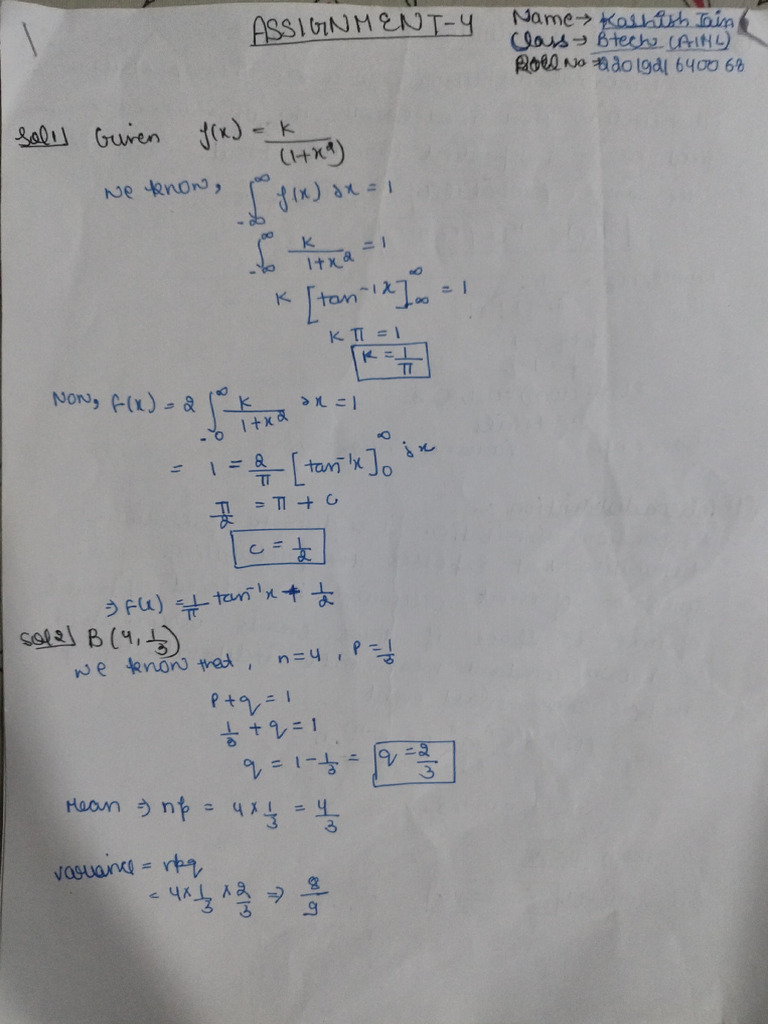 ASSIGNMENT-4
Name → Kashish Jain
Class → Btech (AIML)
Roll No → 2201921640068
Sol1) Given f(x) = K/(1+x²)
We know, ∫_{-∞}^{∞} f(x) dx = 1
∫_{-∞}^{∞} K/(1+x²) = 1
K [tan⁻¹x]_{-∞}^{∞} = 1
K π = 1
K = 1/π
Now, F(x) = 2 ∫_{-0}^{∞} K/(1+x²) dx = 1
= 1 = 2/π [tan⁻¹x]_{0}^{∞} dx
π/2 = π + C
C = 1/2
⇒ F(x) = 1/π tan⁻¹x + 1/2
Sol2) B(4, 1/3)
We know that, n=4, P=1/3
P+q = 1
1/3 + q = 1
q = 1 - 1/3 = q = 2/3
Mean ⇒ np = 4 × 1/3 = 4/3
variance = npq
= 4 × 1/3 × 2/3 ⇒ 8/9